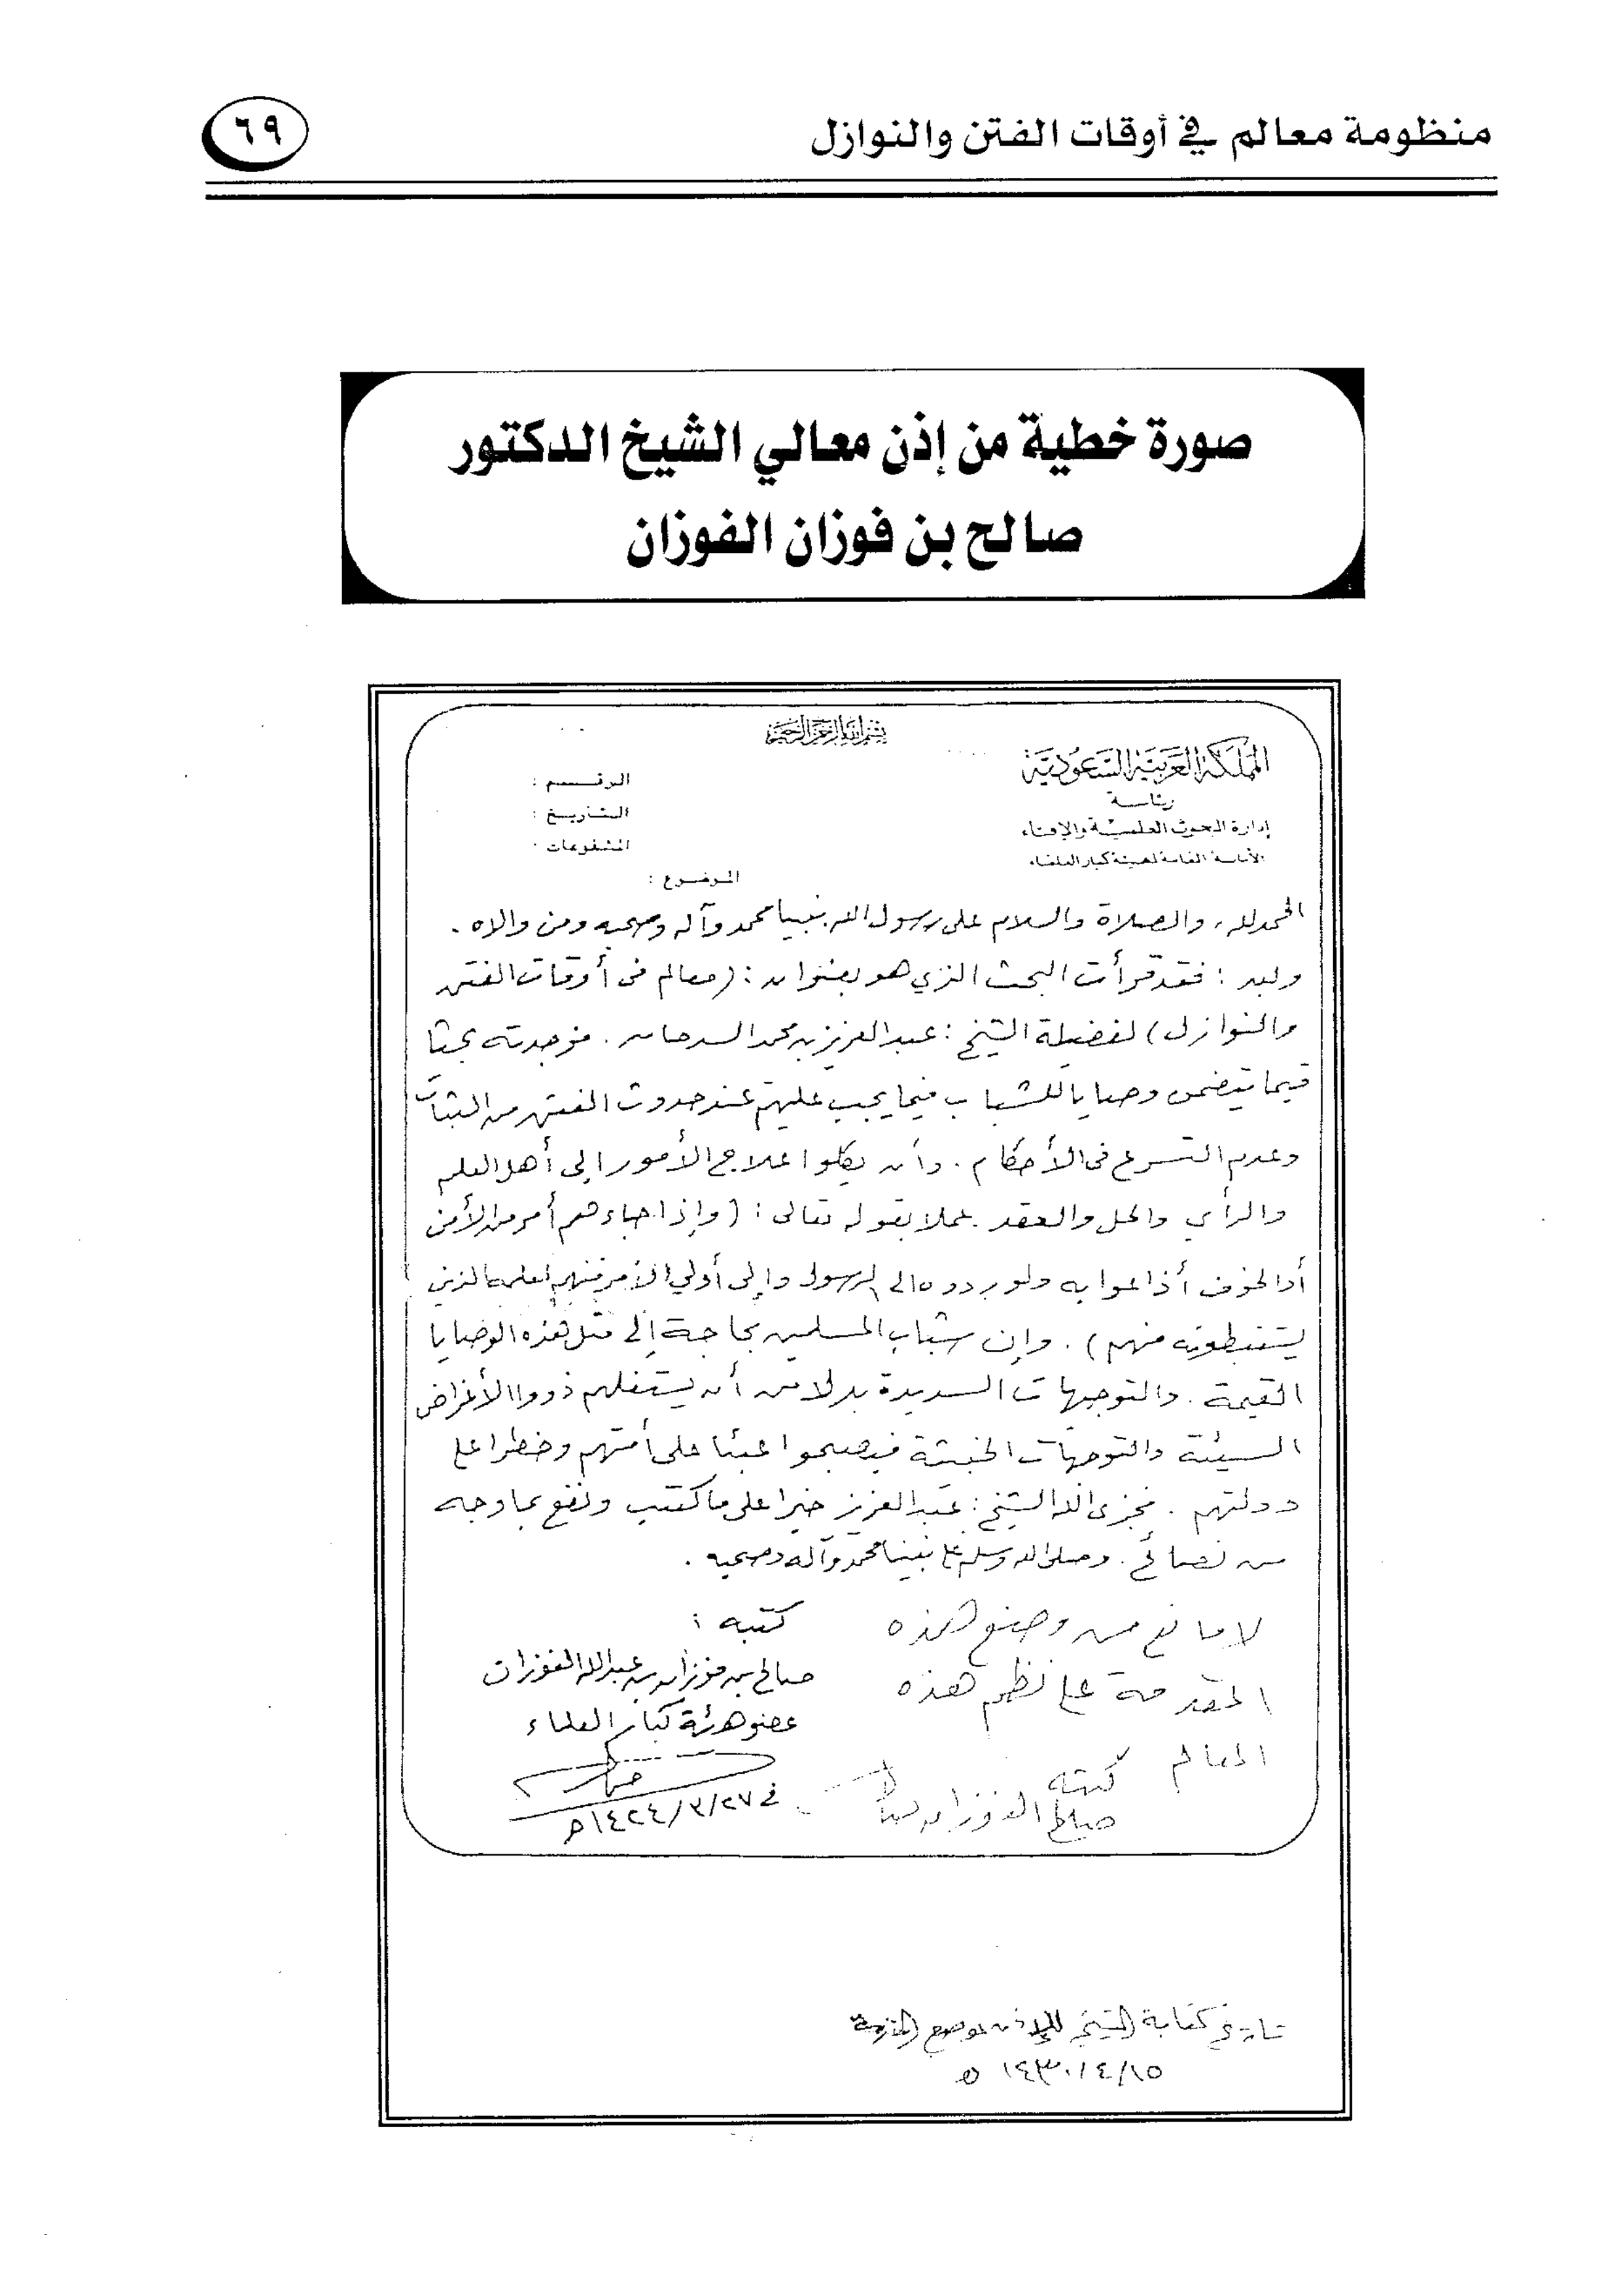 منظومة معالم في أوقات الفتن والنوازل
٦٩
صورة خطية من إذن معالي الشيخ الدكتور
صالح بن فوزان الفوزان
بسم الله الرحمن الرحيم
المملكة العربية السعودية
رئاسة
إدارة البحوث العلمية والإفتاء
الأمانة العامة لهيئة كبار العلماء
الرقم :
التاريخ :
المشفوعات :
الموضوع :
الحمد لله، والصلاة والسلام على رسول الله نبينا محمد وآله وصحبه ومن والاه .
وبعد : فقد قرأت البحث الذي هو بعنوان : (معالم في أوقات الفتن
والنوازل) لفضيلة الشيخ : عبدالعزيز بن محمد السدحان . فوجدته بحثا
قيما يتضمن وصايا للشباب فيما يجب عليهم عند حدوث الفتن من الثبات
وعدم التسرع في الأحكام . وأن يكلوا علاج الأمور إلى أهل العلم
والرأي والحل والعقد . عملا بقوله تعالى : (وإذا جاءهم أمر من الأمن
أو الخوف أذاعوا به ولو ردوه إلى الرسول وإلى أولي الأمر منهم لعلمه الذين
يستنبطونه منهم) . وإن شباب المسلمين بحاجة إلى مثل هذه الوصايا
القيمة . والتوجيهات السديدة بدلا من أن يستغلهم ذووا الأغراض
السيئة والتوجهات الخبيثة فيصبحوا عبئا على أمتهم وخطرا على
دولتهم . فجزى الله الشيخ : عبدالعزيز خيرا على ما كتب ونفع بما وجه
من نصائح . وصلى الله وسلم على نبينا محمد وآله وصحبه .
كتبه :
صالح بن فوزان بن عبدالله الفوزان
عضو هيئة كبار العلماء
في ١٤٢٤/٣/٢٧هـ
لا مانع من وضع هذه
المقدمة على نظم هذه
المعالم
كتبه
صالح الفوزان
تاريخ كتابة الشيخ للإذن بوضع المقدمة
١٤٣٠/٤/١٥ هـ